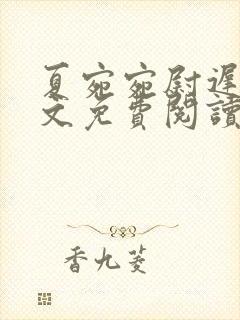 夏宛宛尉遲
文免費閱讀
香九菱